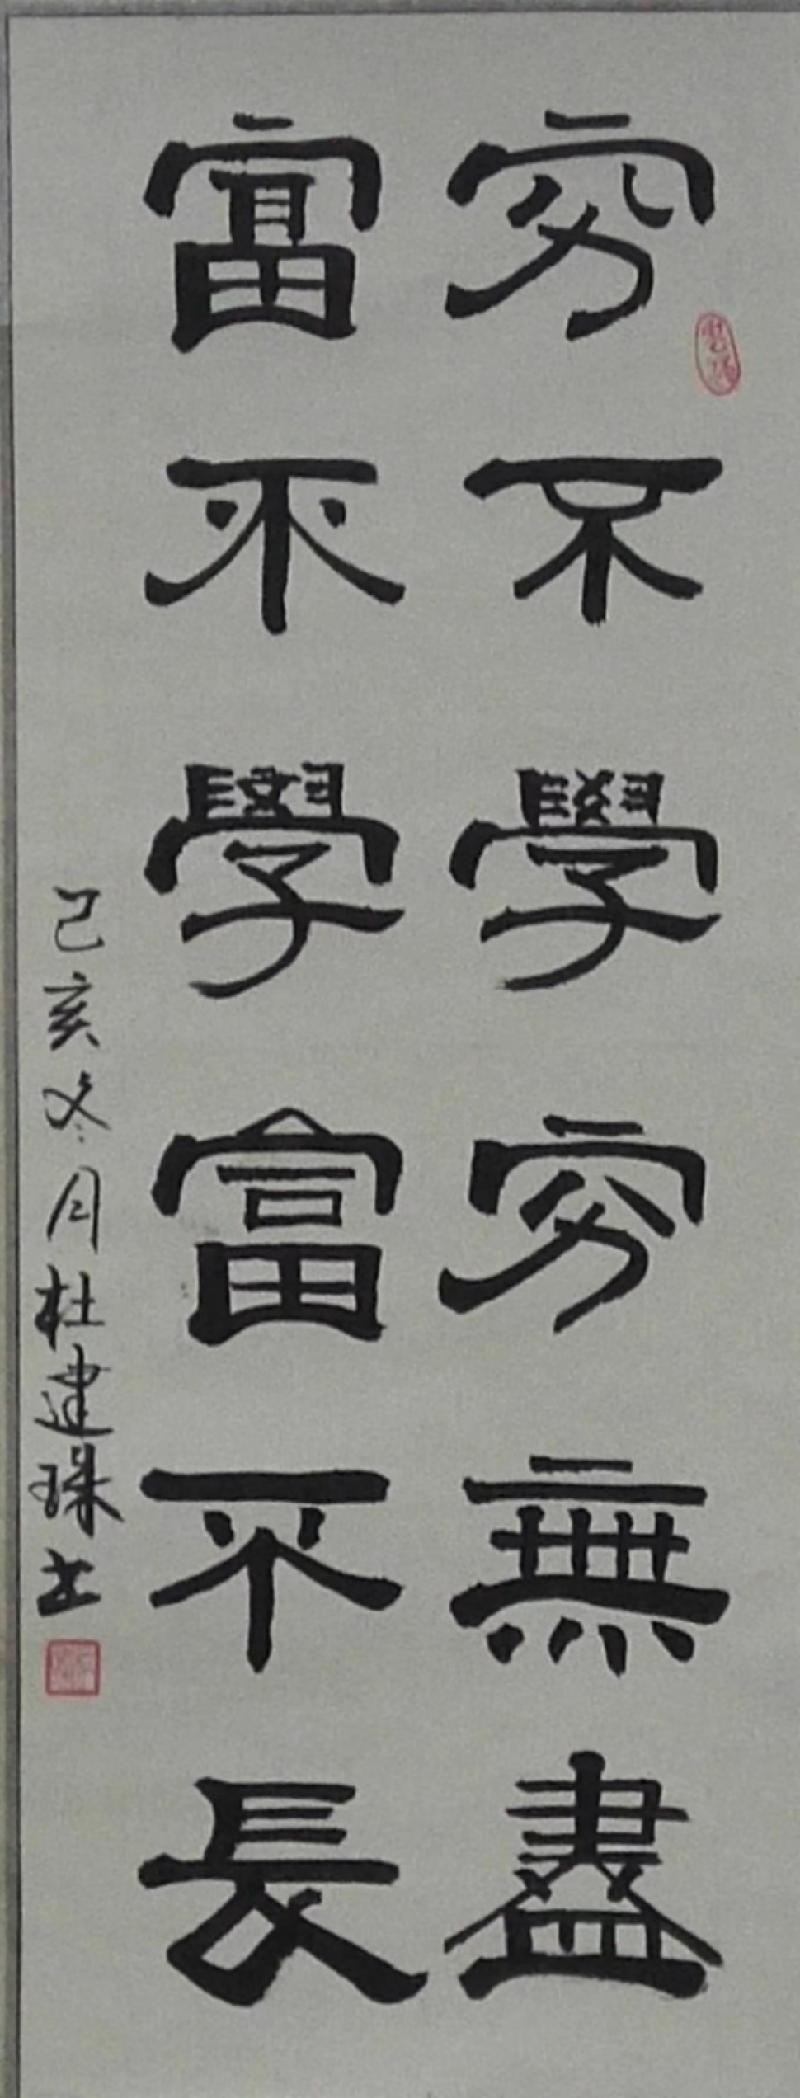 穷不學穷無盡
富不學富不長
己亥冬月杜建珠书